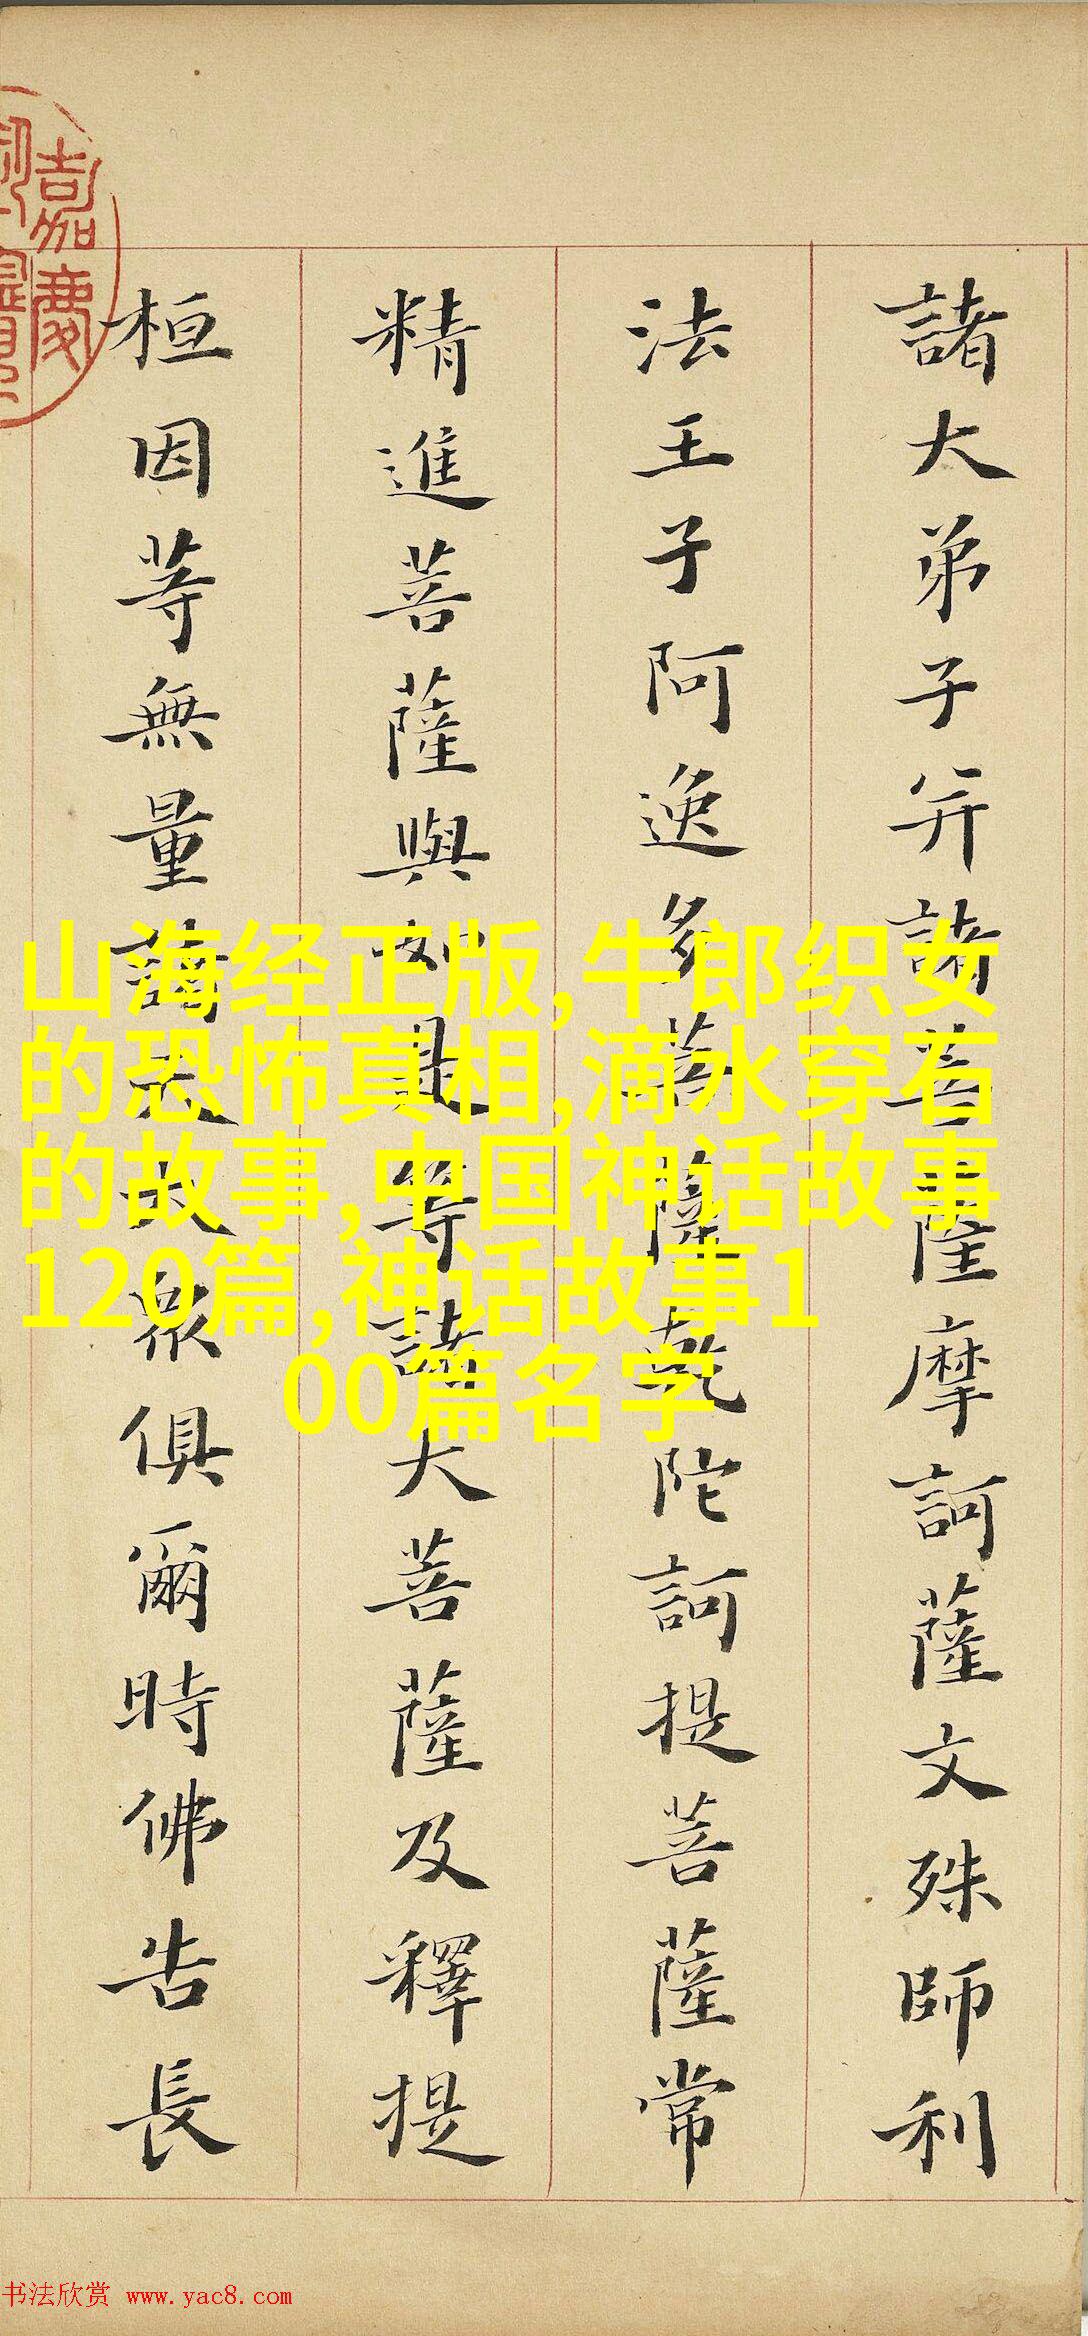 諸大弟子并諸菩薩摩訶薩文殊師利
法王子阿逸多菩薩乾陀訶提菩薩常
精進菩薩與如是等諸大菩薩及釋提
桓因等無量諸天大衆俱爾時佛告長
嘉慶
山海经正版,牛郎织女
的恐怖真相,滴水穿石
的故事,中国神话故事
120篇,神话故事1
00篇名字
书法欣赏 www.yac8.com